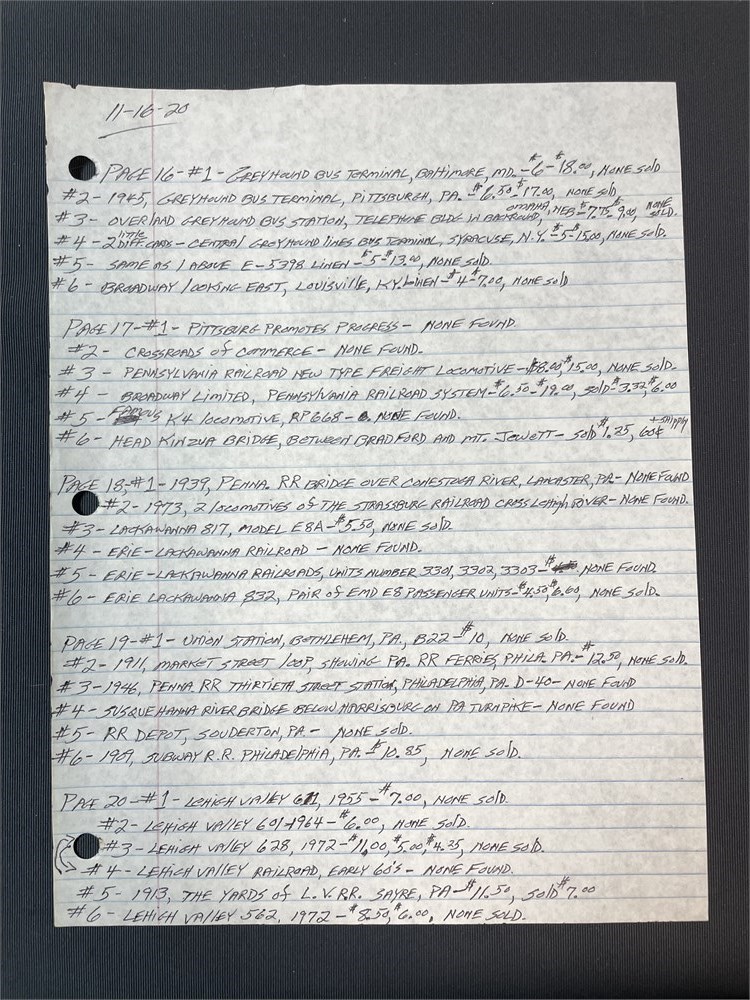 11-16-20
PAGE 16-#1- GREYHOUND BUS TERMINAL, BALTIMORE, MD.-$6-$18.00, NONE SOLD
#2- 1945, GREYHOUND BUS TERMINAL, PITTSBURGH, PA.-$6.50-$17.00, NONE SOLD
#3- OVERLAND GREYHOUND BUS STATION, TELEPHONE BLDG IN BACKROUND, OMAHA, NEB-$7.75-$9.00, NONE SOLD.
#4- 2 little DIFF CARDS- CENTRAL GREYHOUND LINES BUS TERMINAL, SYRACUSE, N.Y.-$5-$15.00, NONE SOLD.
#5- SAME AS 1 ABOVE E-5398 LINEN-$5-$13.00, NONE SOLD.
#6- BROADWAY LOOKING EAST, LOUISVILLE, KY. LINEN-$4-$7.00, NONE SOLD
PAGE 17-#1- PITTSBURG PROMOTES PROGRESS- NONE FOUND.
#2- CROSSROADS OF COMMERCE- NONE FOUND.
#3- PENNSYLVANIA RAILROAD NEW TYPE FREIGHT LOCOMOTIVE-$8.00-$15.00, NONE SOLD.
#4- BROADWAY LIMITED, PENNSYLVANIA RAILROAD SYSTEM-$6.50-$19.00, SOLD-$3.32, $6.00
#5- FAMOUS K4 LOCOMOTIVE, RP668- NONE FOUND.
#6- HEAD KINZUA BRIDGE, BETWEEN BRADFORD AND MT. JEWETT- SOLD $1.25, 60¢ + Shipping
PAGE 18,-#1- 1939, PENNA. RR BRIDGE OVER CONESTOGA RIVER, LANCASTER, PA- NONE FOUND
#2- 1973, 2 LOCOMOTIVES OF THE STRASSBURG RAILROAD CROSS LEHIGH RIVER- NONE FOUND.
#3- LACKAWANNA 817, MODEL E8A-$5.50, NONE SOLD.
#4- ERIE-LACKAWANNA RAILROAD- NONE FOUND.
#5- ERIE-LACKAWANNA RAILROADS, UNITS NUMBER 3301, 3302, 3303- NONE FOUND.
#6- ERIE LACKAWANNA 832, PAIR OF EMD E8 PASSENGER UNITS-$4.50, $6.60, NONE SOLD.
PAGE 19-#1- UNION STATION, BETHLEHEM, PA, B22-$10, NONE SOLD.
#2- 1911, MARKET STREET LOOP, SHOWING PA. RR FERRIES, PHILA. PA.-$12.50, NONE SOLD.
#3- 1946, PENNA. RR THIRTIETH STREET STATION, PHILADELPHIA, PA. D-40- NONE FOUND
#4- SUSQUEHANNA RIVER BRIDGE BELOW HARRISBURG ON PA TURNPIKE- NONE FOUND
#5- RR DEPOT, SOUDERTON, PA- NONE SOLD.
#6- 1909, SUBWAY R.R. PHILADELPHIA, PA.-$10.85, NONE SOLD.
PAGE 20-#1- LEHIGH VALLEY 611, 1955-$7.00, NONE SOLD.
#2- LEHIGH VALLEY 601-1964-$6.00, NONE SOLD.
#3- LEHIGH VALLEY 628, 1972-$11.00, $5.00, $4.25, NONE SOLD.
#4- LEHIGH VALLEY RAILROAD, EARLY 60'S- NONE FOUND.
#5- 1913, THE YARDS OF L.V.RR. SAYRE, PA-$11.50, SOLD $7.00
#6- LEHIGH VALLEY 562, 1972-$8.50, $6.00, NONE SOLD.